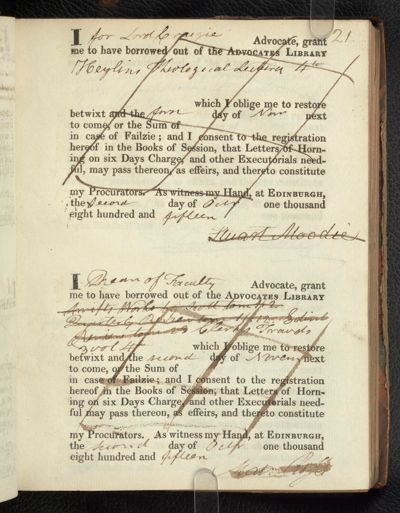 21
I for Lord Craigie Advocate, grant
me to have borrowed out of the ADVOCATES LIBRARY
Heylins Theological Lectures 4to
which I oblige me to restore
betwixt and the first day of Nov next
to come, or the Sum of
in case of Failzie; and I consent to the registration
hereof in the Books of Session, that Letters of Horn-
ing on six Days Charge, and other Executorials need-
ful, may pass thereon, as effeirs, and thereto constitute
my Procurators. As witness my Hand, at EDINBURGH,
the Second day of Octr one thousand
eight hundred and fifteen
Stuart Moodie
I Dean of Faculty Advocate, grant
me to have borrowed out of the ADVOCATES LIBRARY
Swifts Works
Clarkes Travels
2 vol 4to which I oblige me to restore
betwixt and the second day of Novem next
to come, or the Sum of
in case of Failzie; and I consent to the registration
hereof in the Books of Session, that Letters of Horn-
ing on six Days Charge, and other Executorials need-
ful may pass thereon, as effeirs, and thereto constitute
my Procurators. As witness my Hand, at EDINBURGH,
the second day of Octr one thousand
eight hundred and fifteen